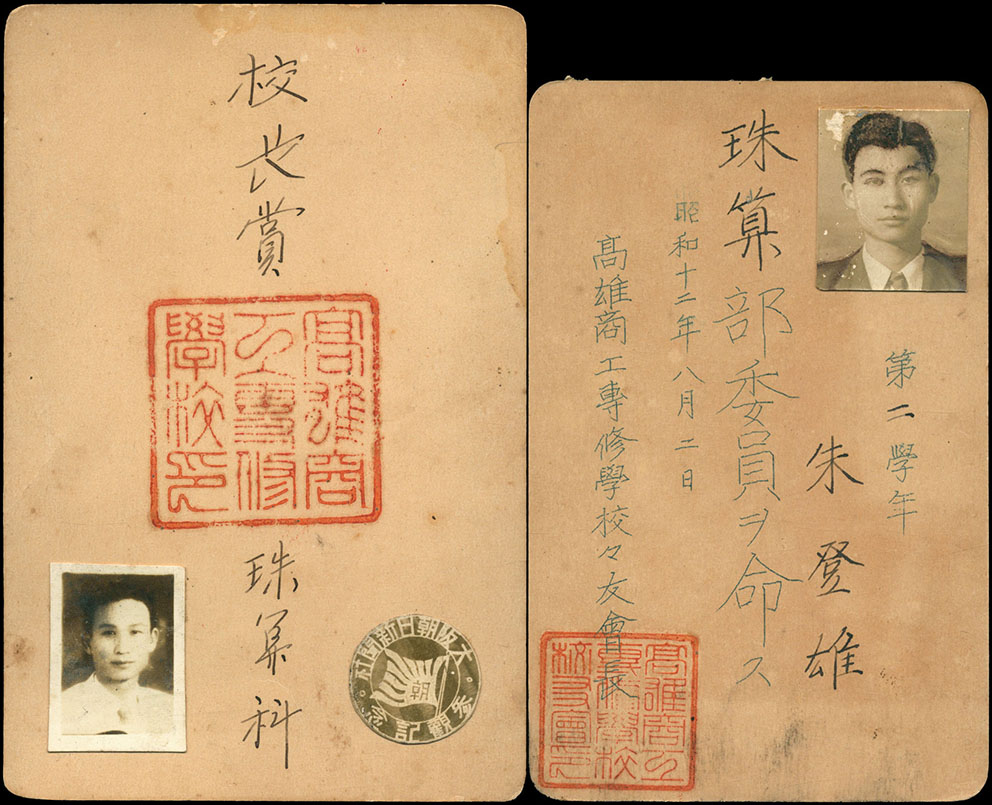 校長賞
高雄商
工專修
學校印
珠算科
大阪朝日新聞社
朝
參觀記念
第二學年
朱登雄
珠算部委員ヲ命ス
昭和十二年八月二日
高雄商工專修學校々友會長
高雄商工
專修學校
校友會印